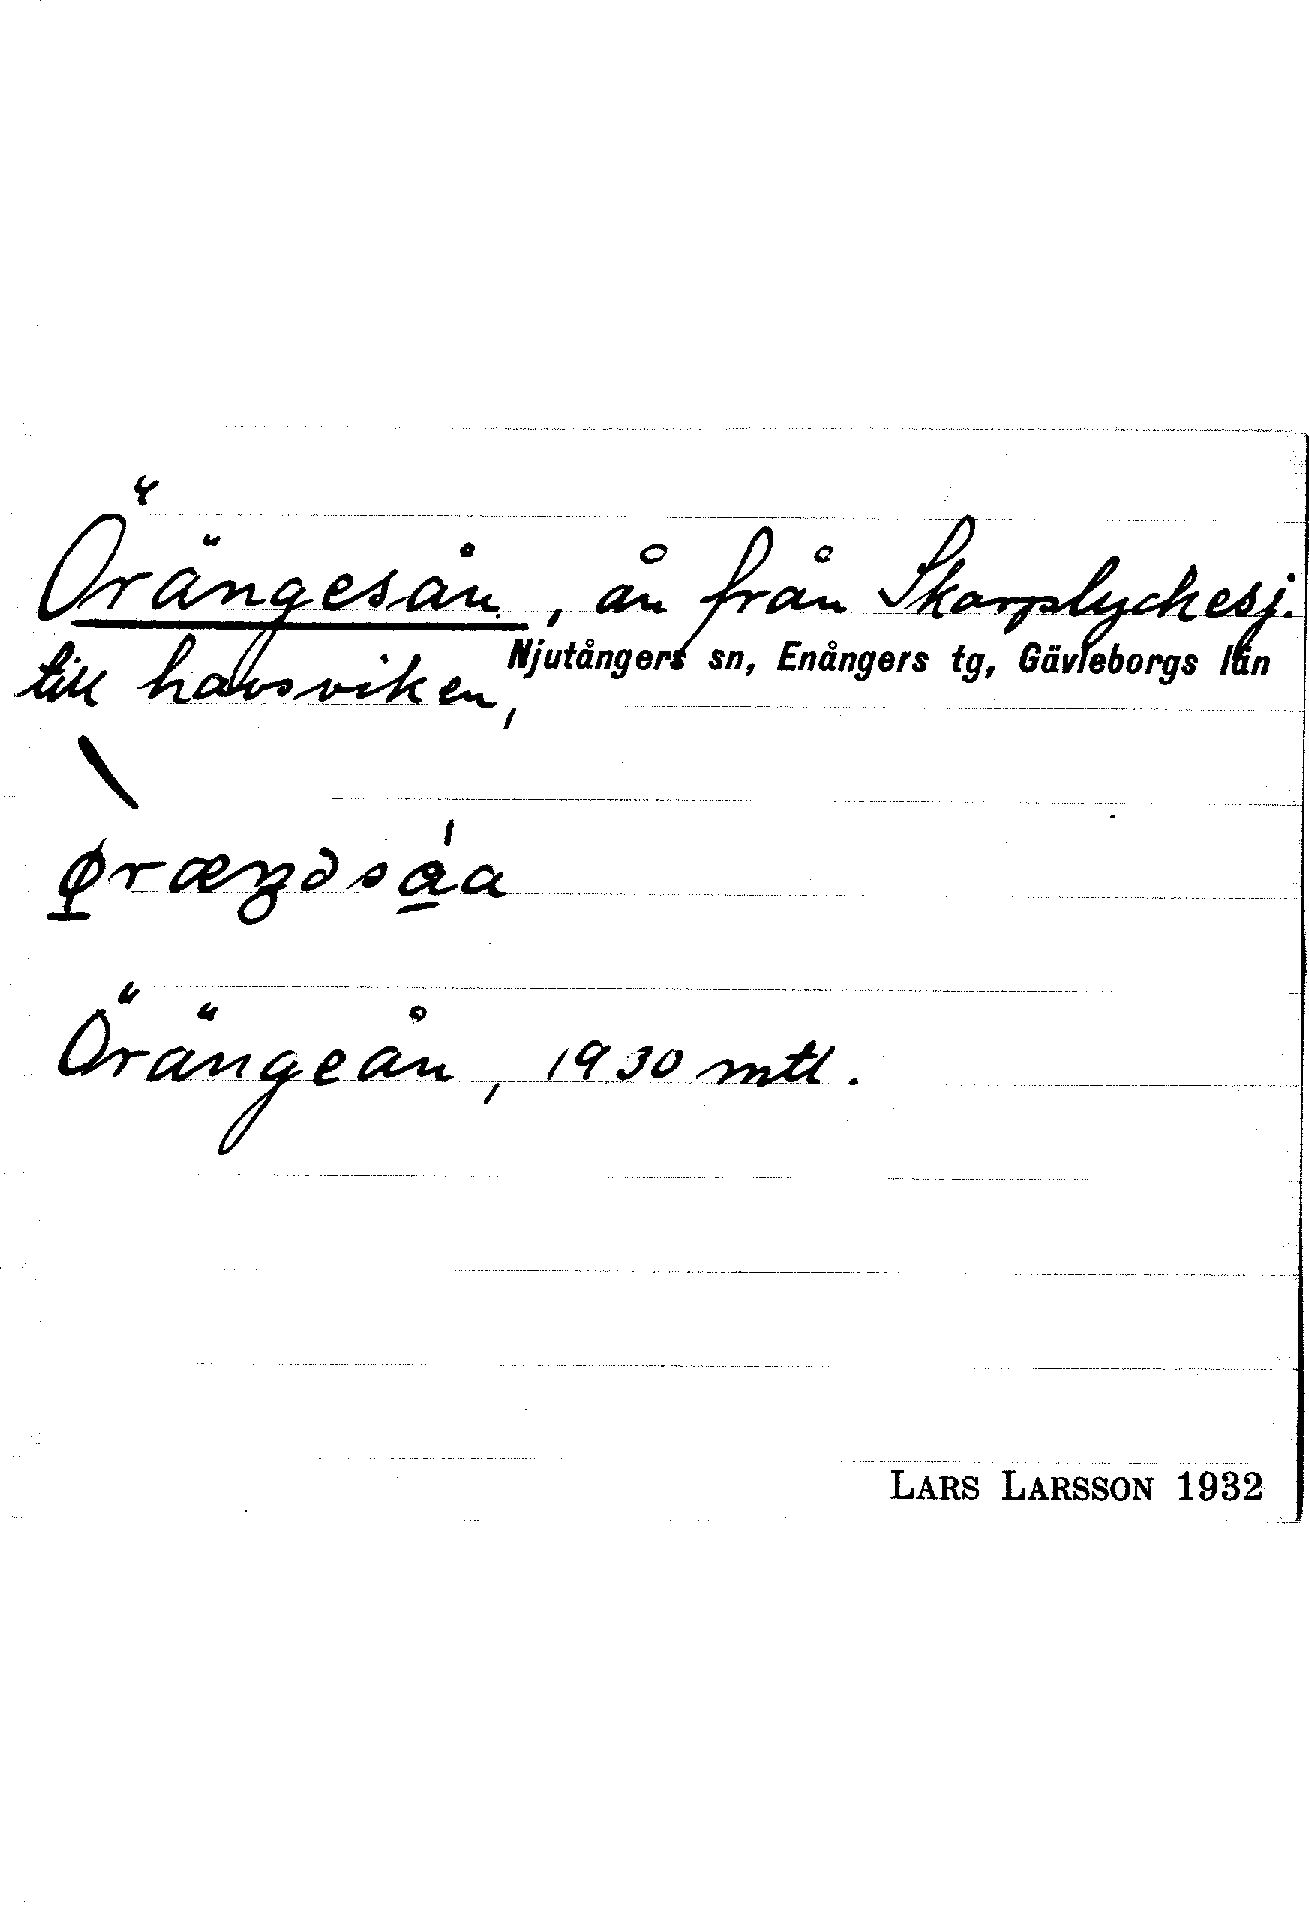 Örängesån, ån från Skarplyckesj.
till havsviken,
Njutångers sn, Enångers tg, Gävleborgs län
Örängeån, 1930 mtl.
LARS LARSSON 1932